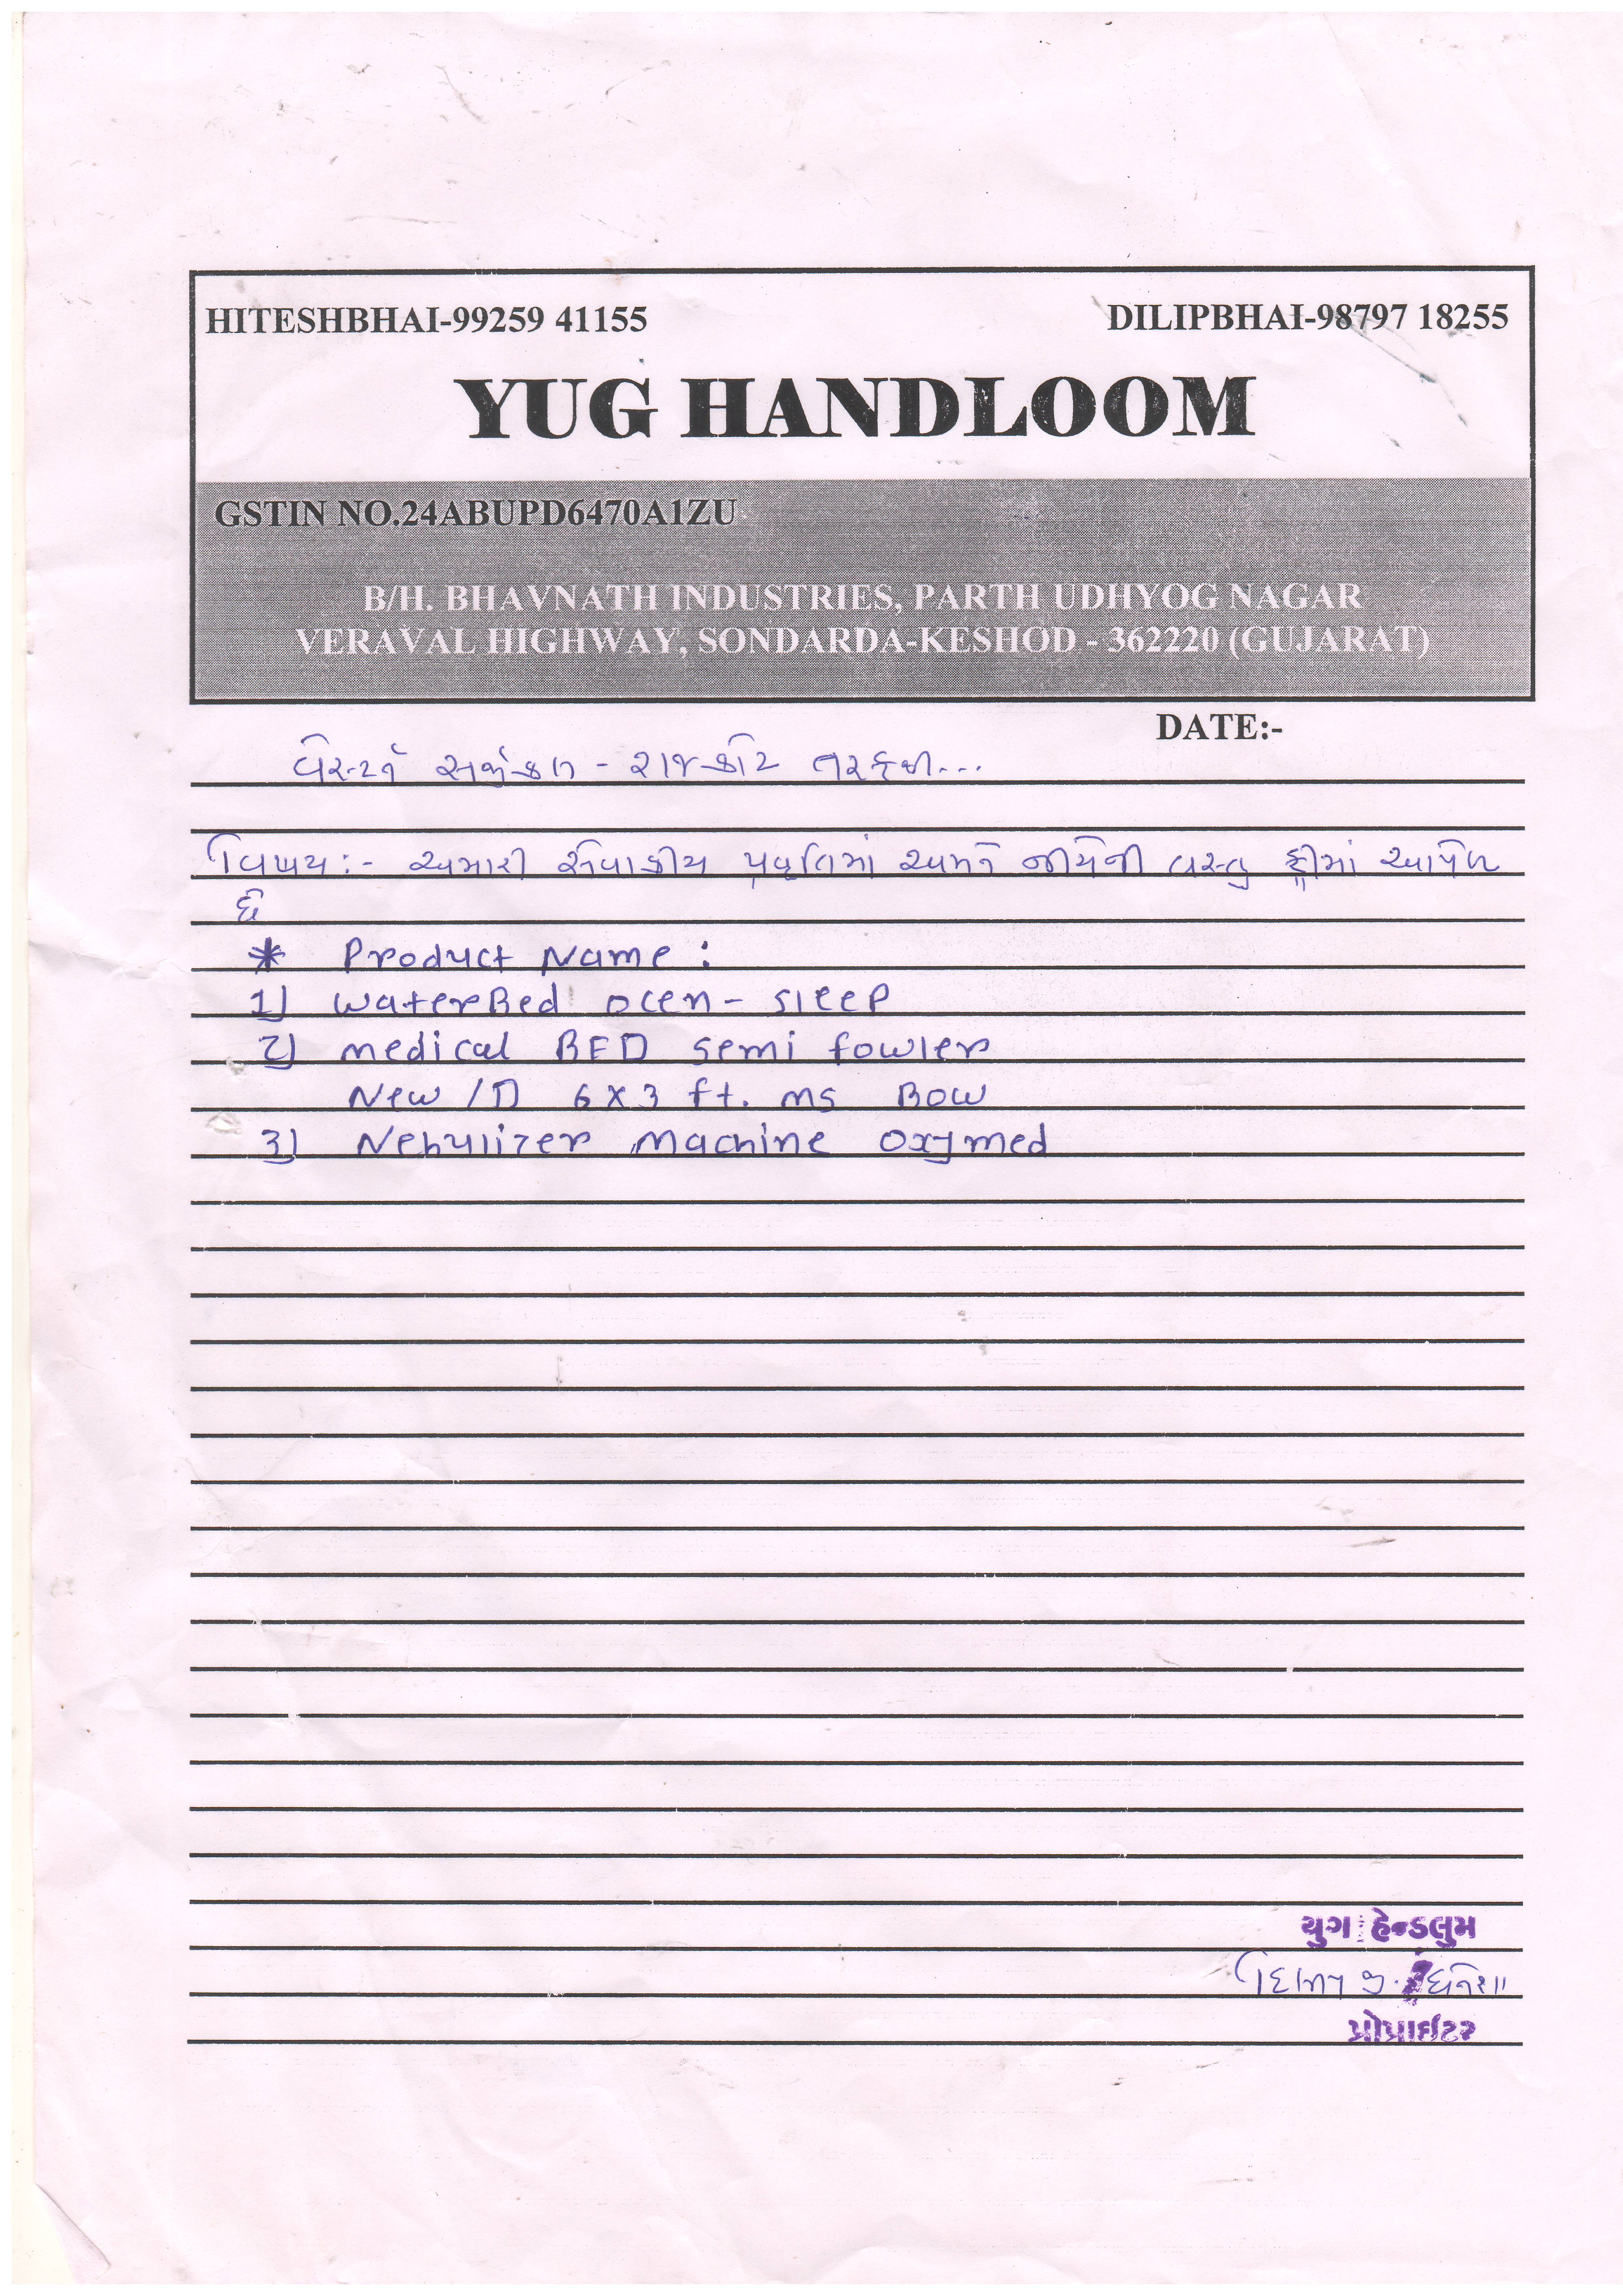 HITESHBHAI-99259 41155 DILIPBHAI-98797 18255
YUG HANDLOOM
GSTIN NO.24ABUPD6470A1ZU
B/H. BHAVNATH INDUSTRIES, PARTH UDHYOG NAGAR
VERAVAL HIGHWAY, SONDARDA-KESHOD - 362220 (GUJARAT)
DATE:-
સર્જીકલ - રાજકોટ તરફથી...
વિષય:- અમારી સેવાકીય પ્રવૃતિમાં અમને નીચેની વસ્તુ ફ્રીમાં આપેલ
છે
* Product Name :
1) WaterBed ocen - sleep
2) medical BED semi fowler
New /D 6 x 3 ft. ms Bow
3) Nebulizer machine oxymed
યુગ હેન્ડલુમ
દિલીપ જી.
પ્રોપ્રાઈટર